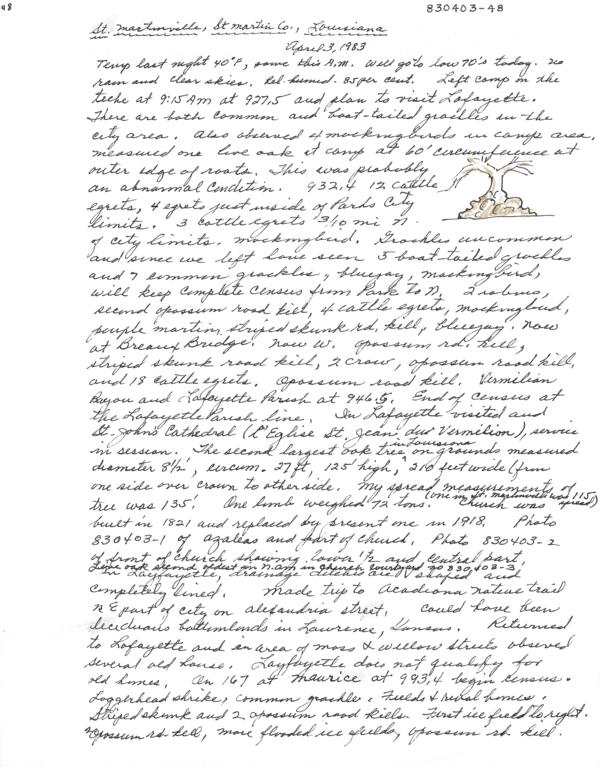 48
830403-48
St. Martinville, St Martin Co., Louisiana
April 3, 1983
Temp last night 40°F, same this A.M. Will go to low 70's today. no
rain and clear skies. Rel. humid. 85 per cent. Left camp on the
teche at 9:15 AM at 927.5 and plan to visit Lafayette.
There are both common and boat-tailed grackles in the
city area. Also observed 4 mockingbirds in camp area.
measured one live oak at camp at 60' circumference at
outer edge of roots. This was probably
an abnormal condition. 932.4 12 cattle
egrets, 4 egrets just inside of Parks City
limits. 3 cattle egrets 3/10 mi N.
of city limits. mockingbird. Grackles uncommon
and since we left have seen 5 boat-tailed grackles
and 7 common grackles, bluejay, mockingbird,
will keep complete census from Park to N. 2 robins,
second opossum road kill, 4 cattle egrets, mockingbird,
purple martin, striped skunk rd. kill, bluejay. Now
at Breaux Bridge. Now W. opossum rd. kill,
striped skunk road kill, 2 crow, opossum road kill,
and 18 cattle egrets. Opossum road kill. Vermilion
Bayou and Lafayette Parish at 946.5. End of census at
the Lafayette Parish line. In Lafayette visited and
St. Johns Cathedral (L'Eglise St. Jean du Vermilion), service
in session. The second largest oak tree in Louisiana on grounds measured
diameter 8½', circum. 27 ft, 125' high, 210 feet wide (from
one side over crown to other side. My spread measurements of
tree was 135'. (one in St. Martinville was 115' spread) One limb weighed 72 tons. Church was
built in 1821 and replaced by present one in 1918. Photo
830403-1 of azaleas and part of church, Photo 830403-2
of front of church showing lower ½ and central part.
Live oak second oldest in N. am in church courtyard no 830403-3.
In Layfayette, drainage ditches are shaped and
completely lined. Made trip to Acadiana nature trail
N E part of city on alexandria street. Could have been
deciduous bottomlands in Lawrence, Kansas. Returned
to Lafayette and in area of moss & willow streets observed
several old house. Layfayette does not qualify for
old homes. On 167 at Maurice at 993.4 begin census.
Loggerhead shrike, common grackle. Fields & rural homes.
Striped skunk and 2 opossum road kills. First rice field to right.
Opossum rd. kill, more flooded rice fields, opossum rd. kill.